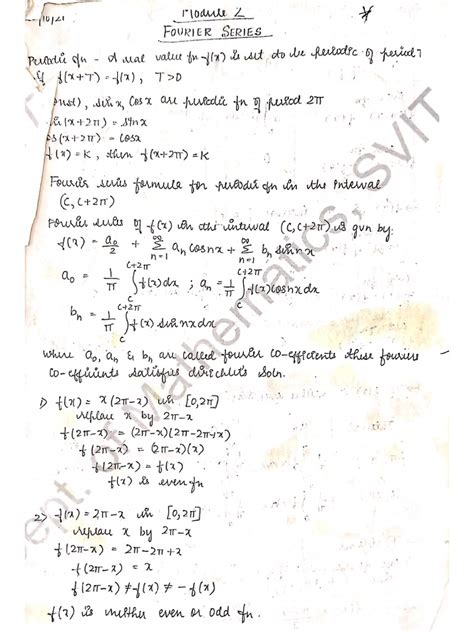 /10/21
Module 2
FOURIER SERIES
Periodic fn - A real value fn f(x) is set to be periodic of period T
if f(x+T) = f(x), T>0
const), sinx, cosx are periodic fn of period 2π
in(x+2π) = sinx
os(x+2π) = cosx
f(x) = K, then f(x+2π) = K
Fourier series formula for periodic fn in the Interval
(C, C+2π)
Fourier series of f(x) in the interval (C, C+2π) is gvn by:
f(x) = a₀/2 + ∞Σn=1 aₙ cosnx + ∞Σn=1 bₙ sinnx
a₀ = 1/π C+2π∫C f(x)dx ; aₙ = 1/π C+2π∫C f(x)cosnxdx
bₙ = 1/π C+2π∫C f(x) sinnxdx
where a₀, aₙ & bₙ are called fourier co-efficients these fouriers
co-efficients satisfies dirichlets soln.
1) f(x) = x(2π-x) in [0,2π]
replace x by 2π-x
f(2π-x) = (2π-x)(2π-2π+x)
f(2π-x) = (2π-x)(x)
f(2π-x) = f(x)
f(x) is even fn
2) f(x) = 2π-x in [0,2π]
replace x by 2π-x
f(2π-x) = 2π-2π+x
f(2π-x) = x
f(2π-x) ≠ f(x) ≠ -f(x)
f(x) is neither even or odd fn.
ept. of Mathematics, SVIT